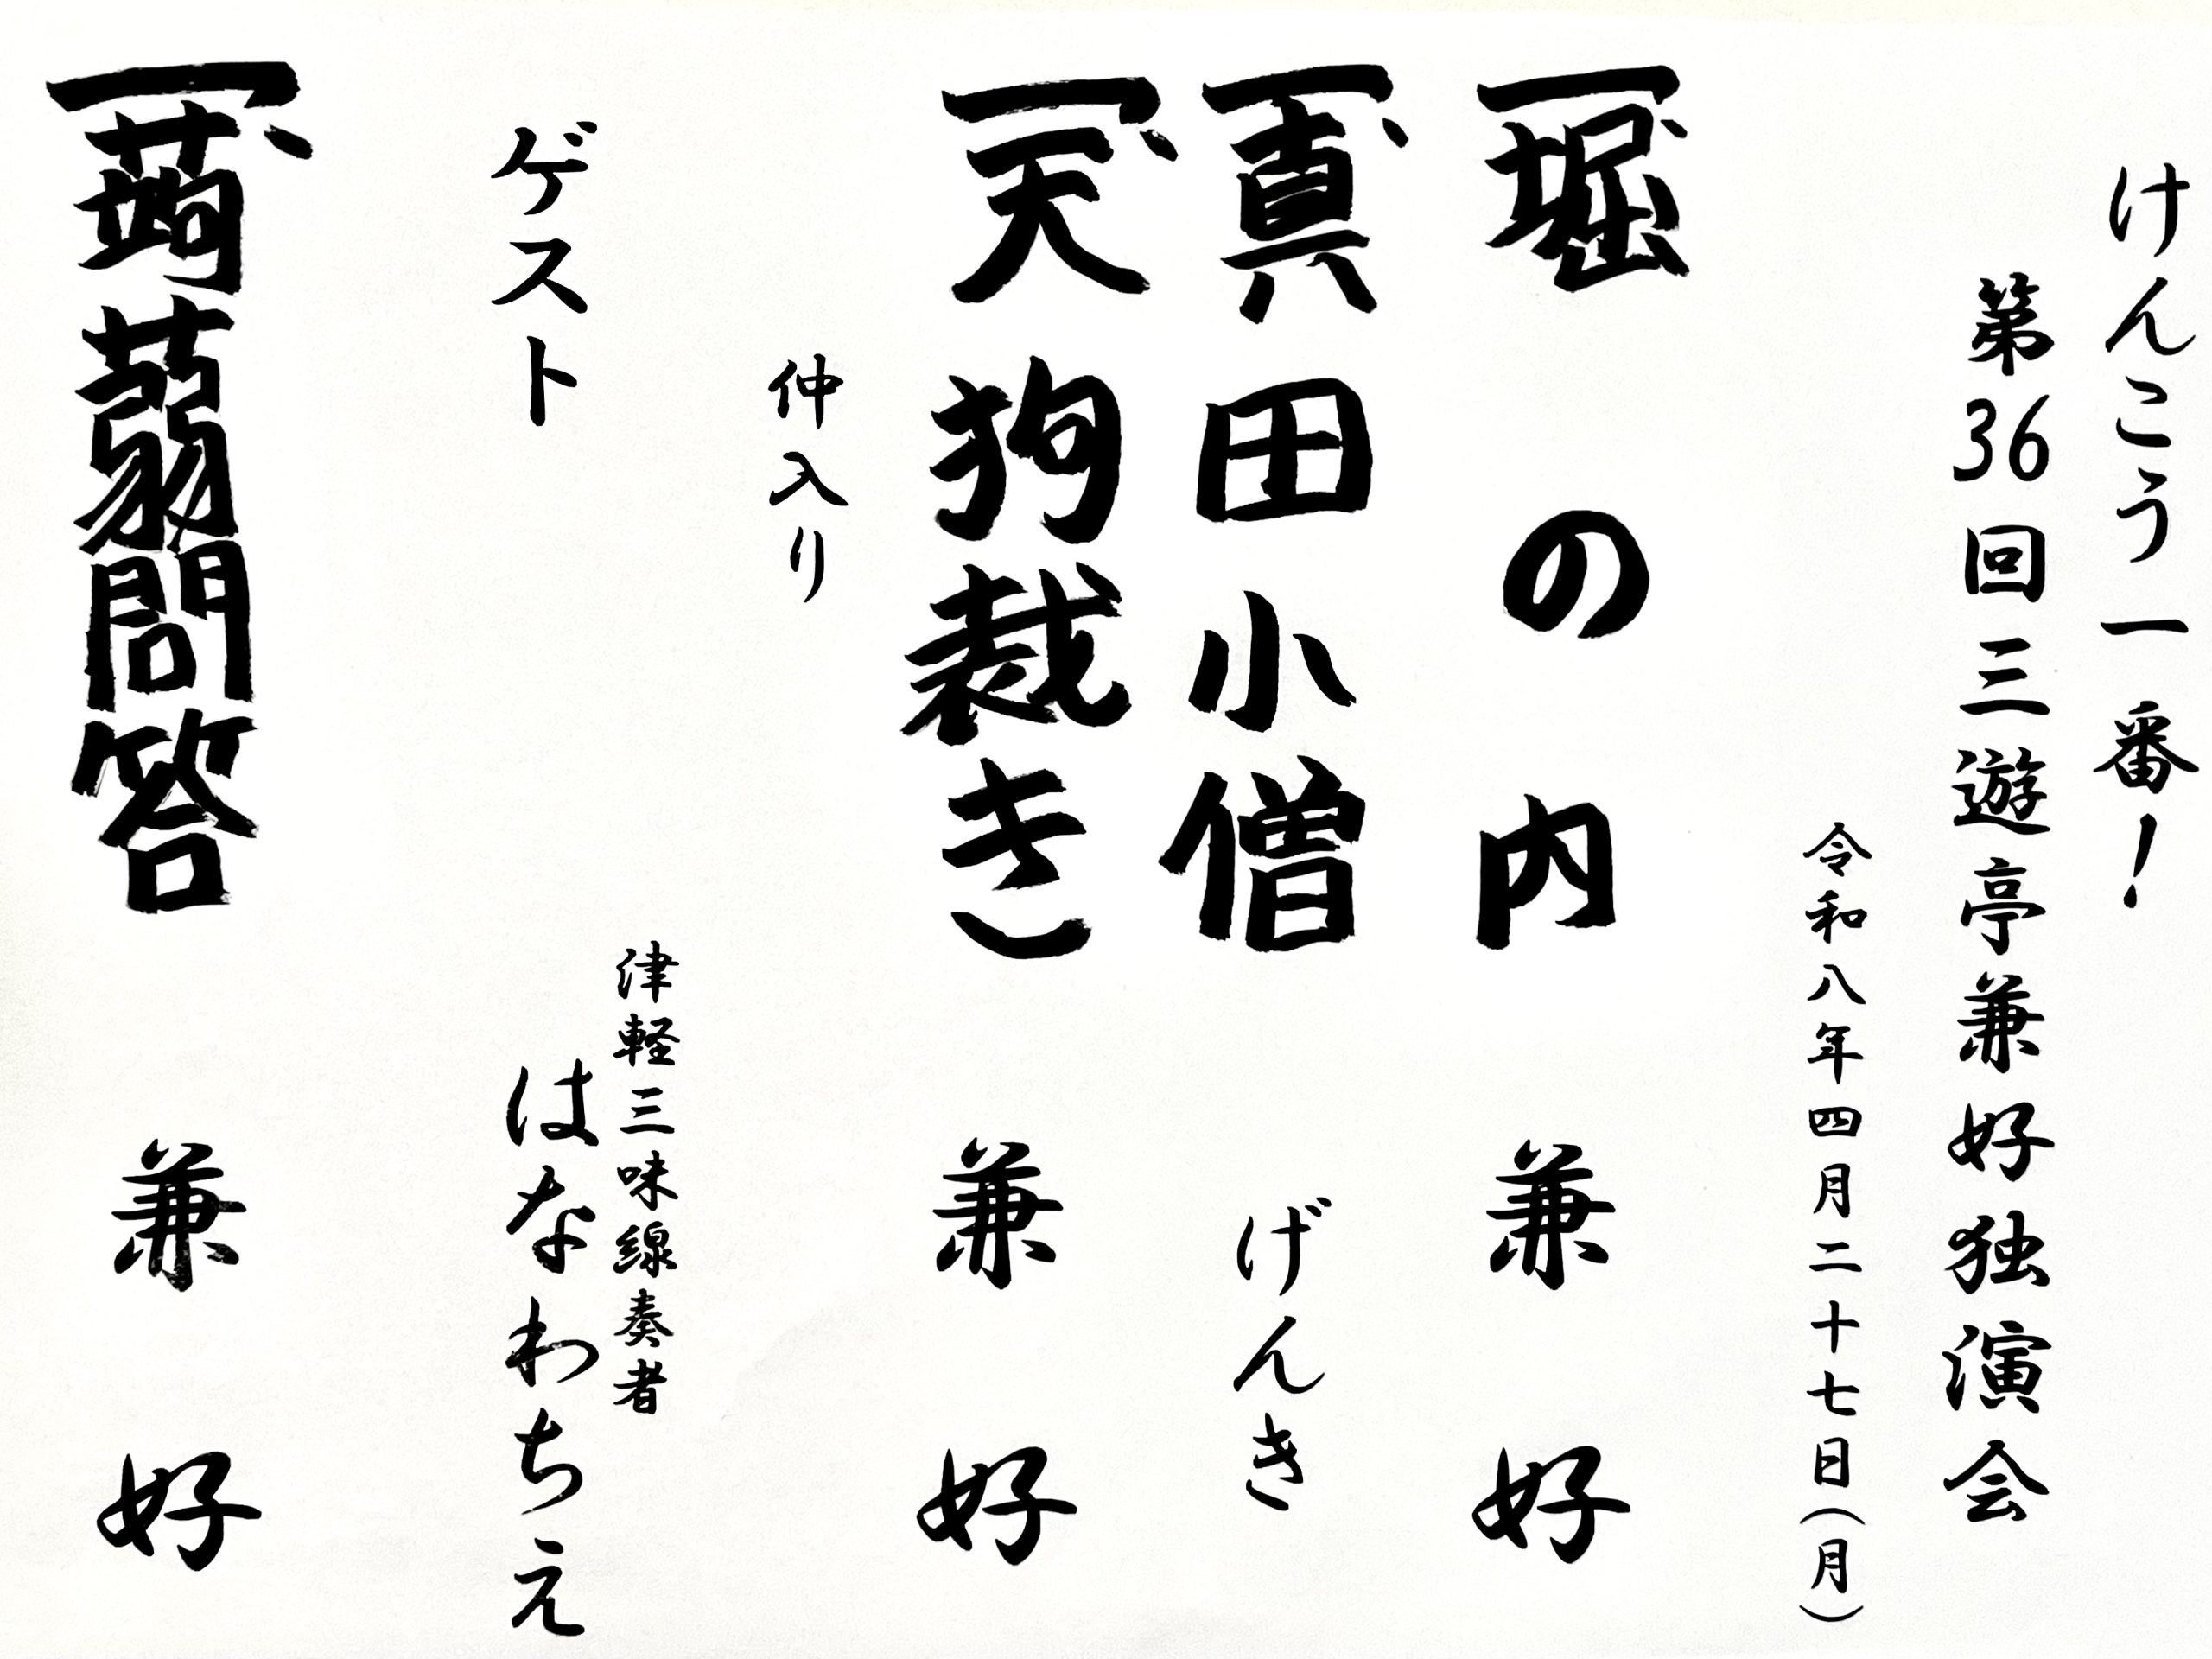 けんこう一番！
第36回三遊亭兼好独演会
令和八年四月二十七日(月)
一、堀の内 兼好
一、真田小僧 げんき
一、天狗裁き 兼好
仲入り
津軽三味線奏者
ゲスト はなわちえ
一、蒟蒻問答 兼好